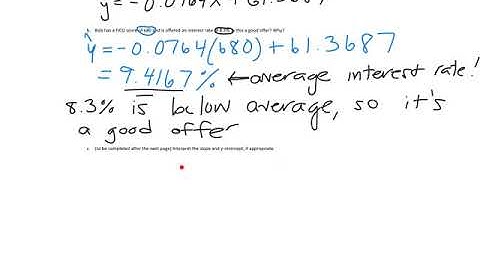 y = -0.0764x + 61.3687
b. Bob has a FICO score of 680 and is offered an interest rate of 8.3%. Is this a good offer? Why?
ŷ = -0.0764(680) + 61.3687
= 9.4167% ← average interest rate!
8.3% is below average, so it's
a good offer
c. (to be completed after the next page) Interpret the slope and y-intercept, if appropriate.